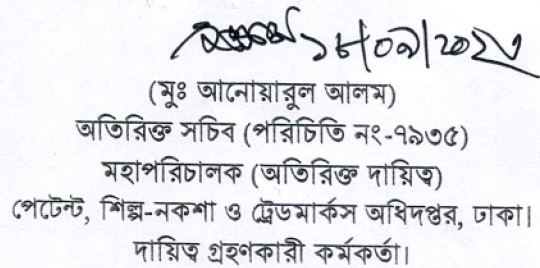 ১৮/০৯/২০২৩
(মুঃ আনোয়ারুল আলম)
অতিরিক্ত সচিব (পরিচিতি নং-৭৯৩৫)
মহাপরিচালক (অতিরিক্ত দায়িত্ব)
পেটেন্ট, শিল্প-নকশা ও ট্রেডমার্কস অধিদপ্তর, ঢাকা।
দায়িত্ব গ্রহণকারী কর্মকর্তা।